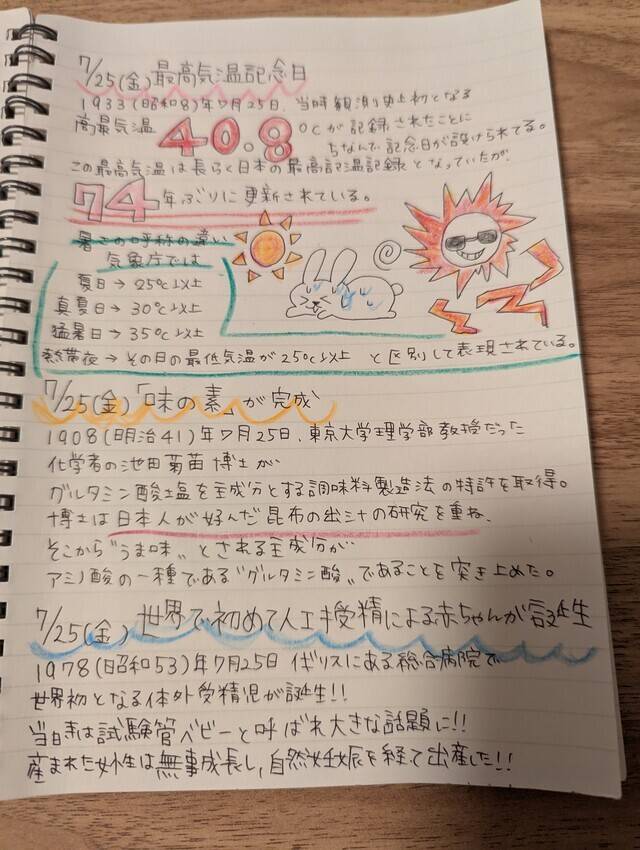 7/25(金)最高気温記念日
1933(昭和8)年7月25日、当時観測史上初となる
高最気温 40.8℃が記録されたことに
ちなんで記念日が設けられてる。
この最高気温は長らく日本の最高記温記録となっていたが、
74年ぶりに更新されている。
暑さの呼称の違い
気象庁では
夏日→25℃以上
真夏日→30℃以上
猛暑日→35℃以上
熱帯夜→その日の最低気温が25℃以上 と区別して表現されている。
7/25(金)「味の素」が完成
1908(明治41)年7月25日、東京大学理学部教授だった
化学者の池田菊苗博士が
グルタミン酸塩を主成分とする調味料製造法の特許を取得。
博士は日本人が好んだ昆布の出汁の研究を重ね、
そこから"うま味"とされる主成分が
アミノ酸の一種である"グルタミン酸"であることを突き止めた。
7/25(金) 世界で初めて人工授精による赤ちゃんが誕生
1978(昭和53)年7月25日 イギリスにある総合病院で
世界初となる体外受精児が誕生!!
当時は試験管ベビーと呼ばれ大きな話題に!!
産まれた女性は無事成長し、自然妊娠を経て出産した!!